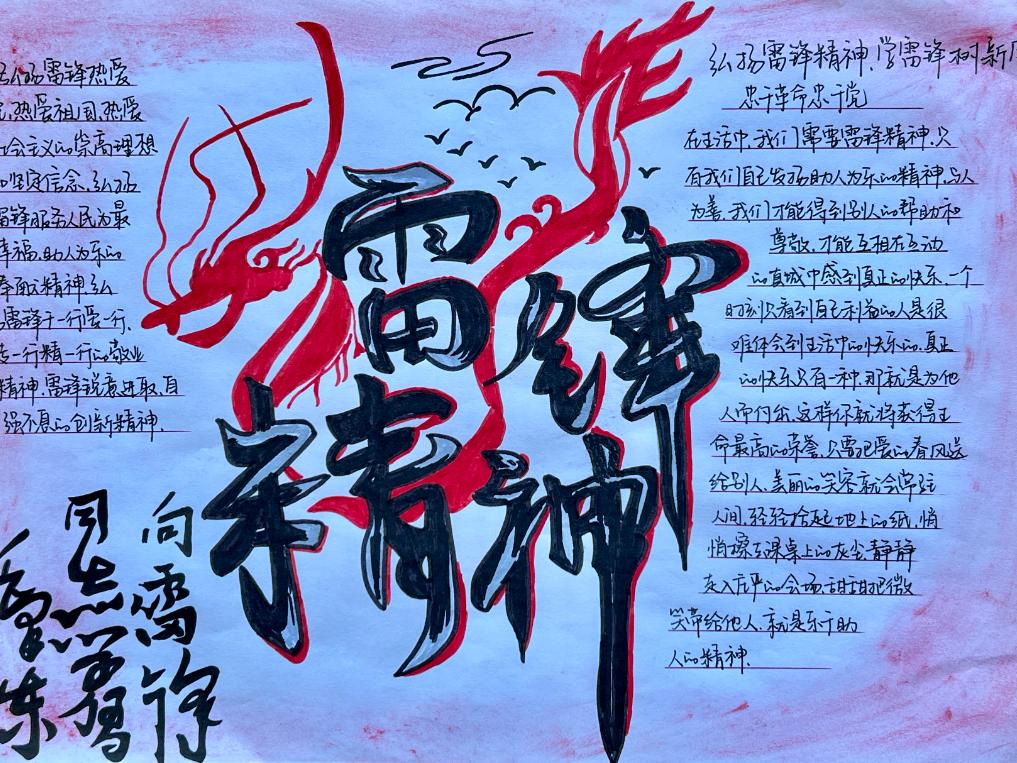 弘扬雷锋热爱
党,热爱祖国,热爱
社会主义的崇高理想
和坚定信念,弘扬
雷锋服务人民为最
幸福,助人为乐的
奉献精神,弘
扬雷锋干一行爱一行、
专一行精一行的敬业
精神.雷锋锐意进取、自
强不息的创新精神.
雷锋
精神
向雷锋
同志学习
毛泽东
弘扬雷锋精神、学雷锋树新风
忠于革命忠于党
在生活中,我们需要雷锋精神,只
有我们自己发扬助人为乐的精神,与人
为善,我们才能得到别人的帮助和
尊敬,才能互相在互动
的真诚中感到真正的快乐.一个
时刻只看到自己利益的人是很
难体会到生活中的快乐的.真正
的快乐只有一种,那就是为他
人而付出,这样你就将获得生
命最高的荣誉,只要把爱的春风送
给别人,美丽的笑容就会常驻
人间,轻轻拾起地上的纸,悄
悄擦去课桌上的灰尘,静静
走入庄严的会场,甜甜把微
笑带给他人,就是乐于助
人的精神.